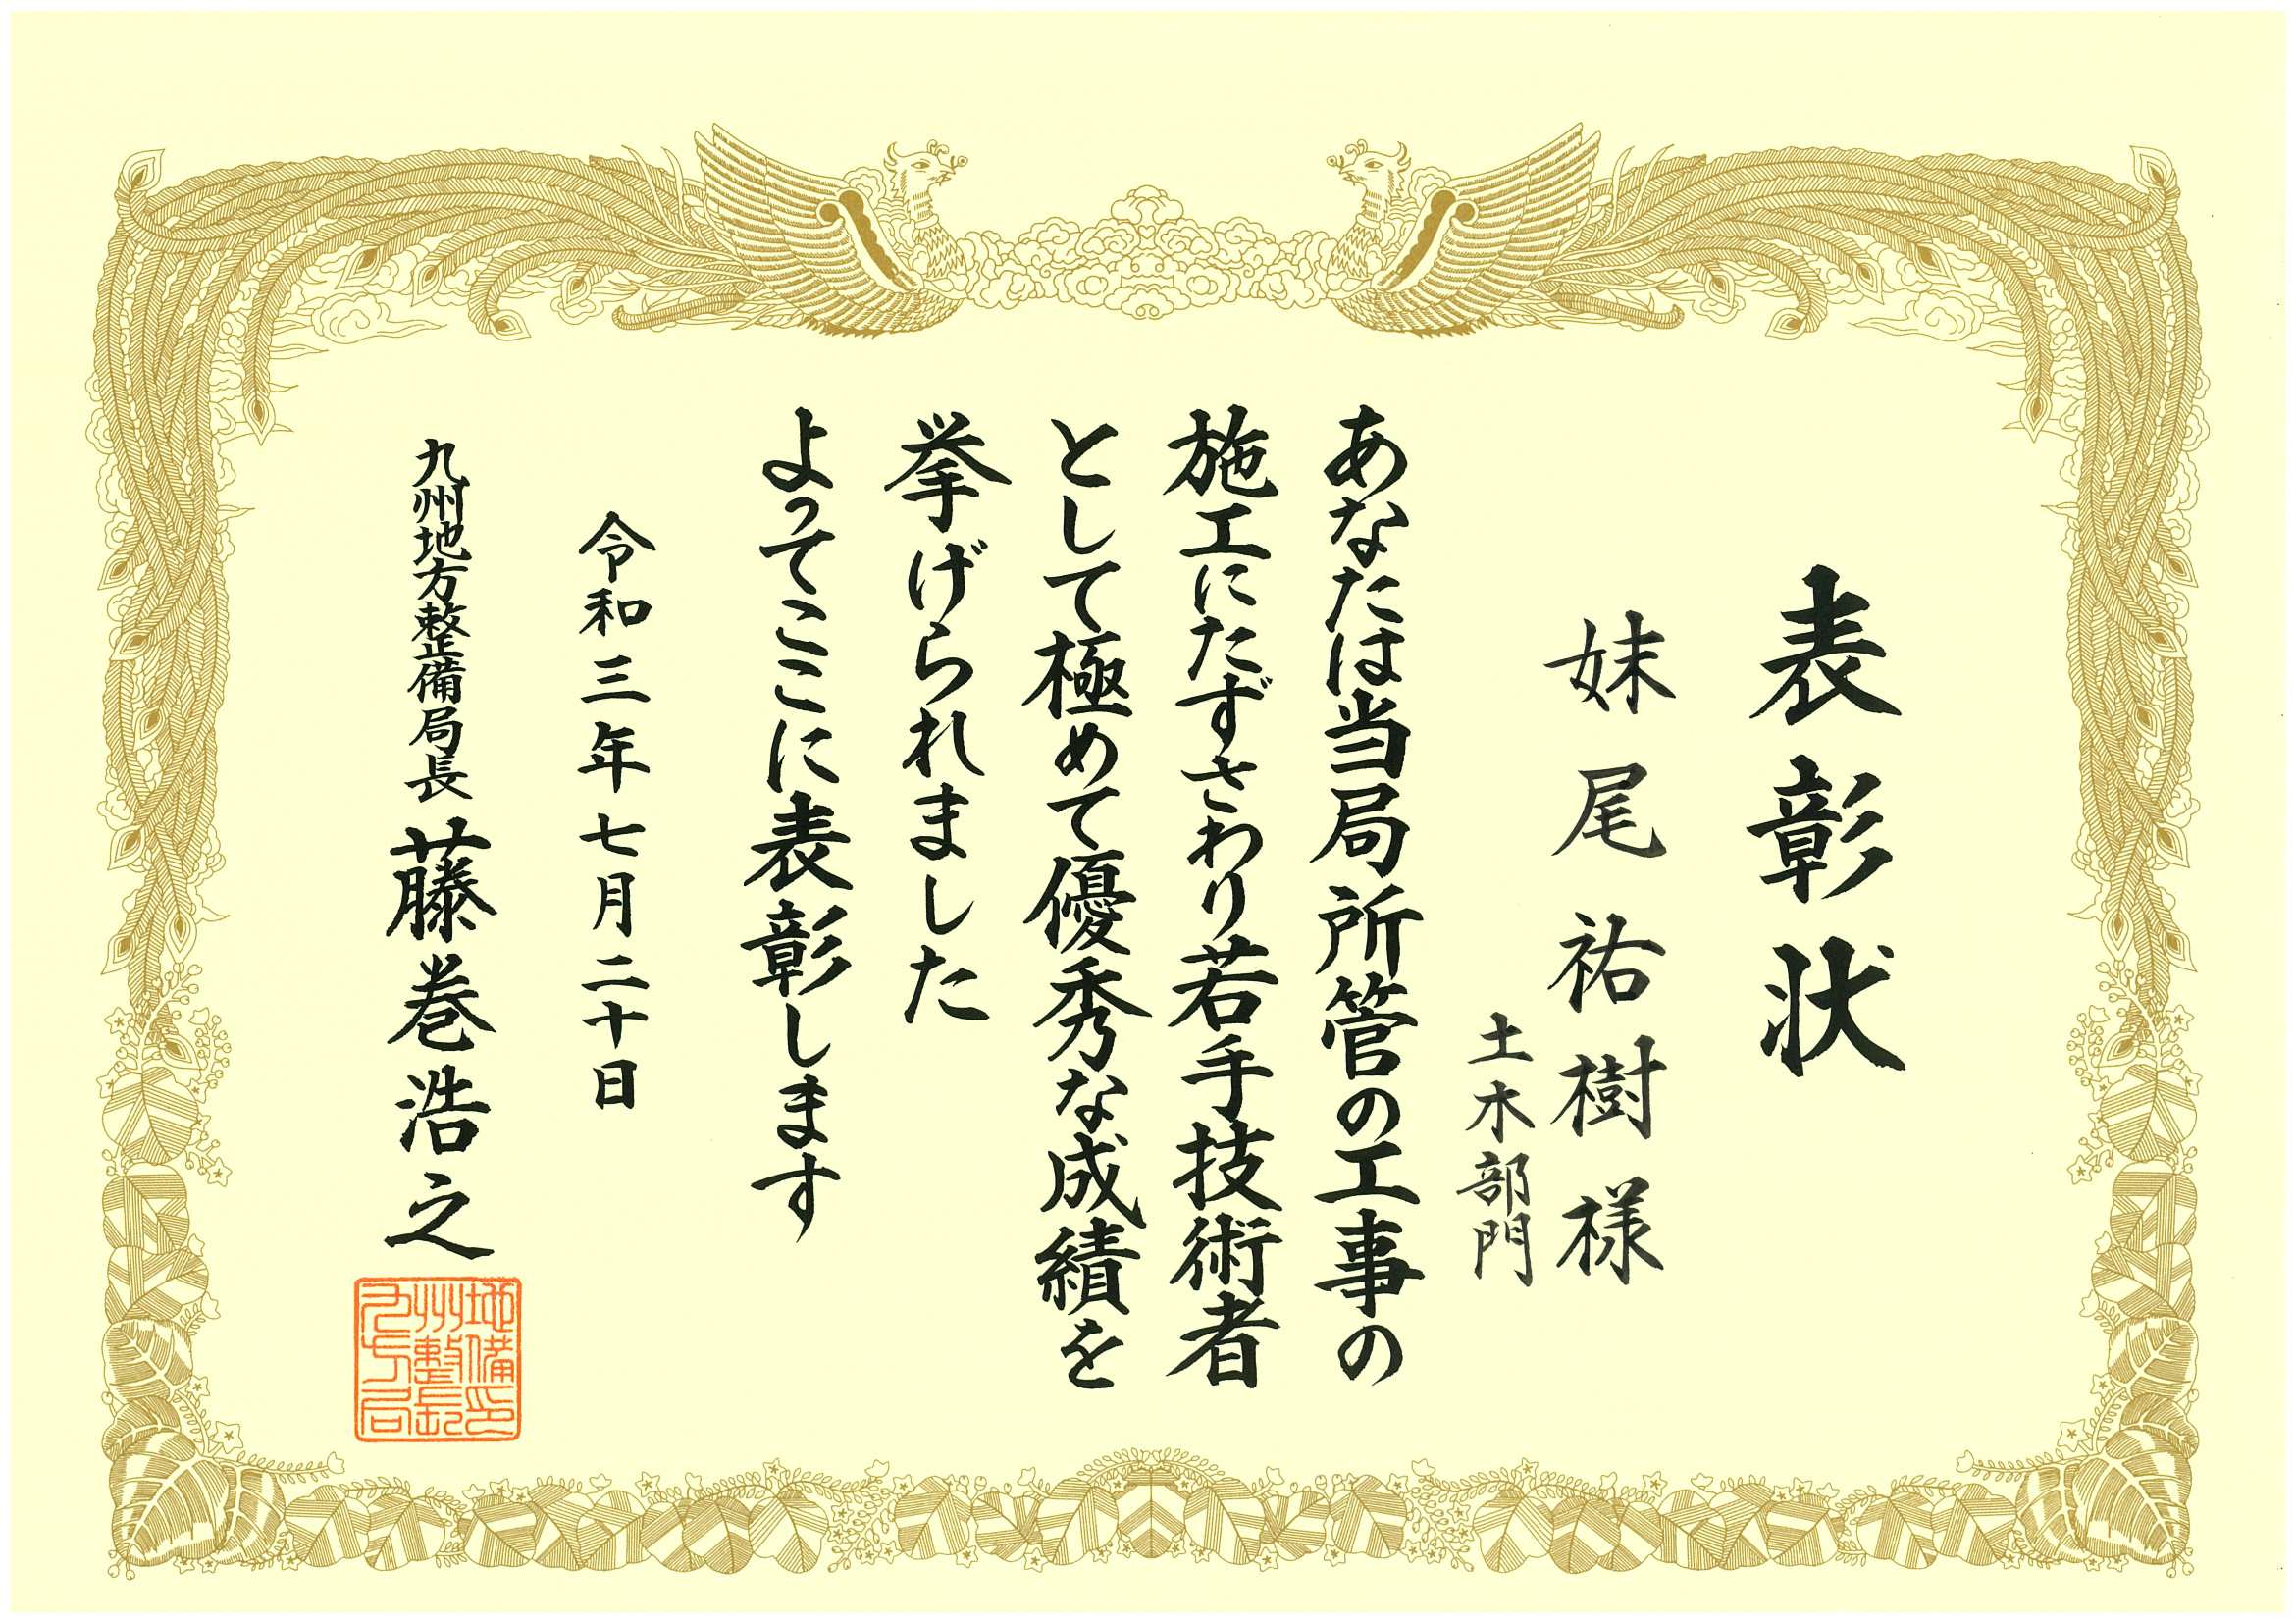 表彰状
妹尾祐樹様
土木部門
あなたは当局所管の工事の
施工にたずさわり若手技術者
として極めて優秀な成績を
挙げられました
よってここに表彰します
令和三年七月二十日
九州地方整備局長 藤巻浩之
九州地方整備局長印